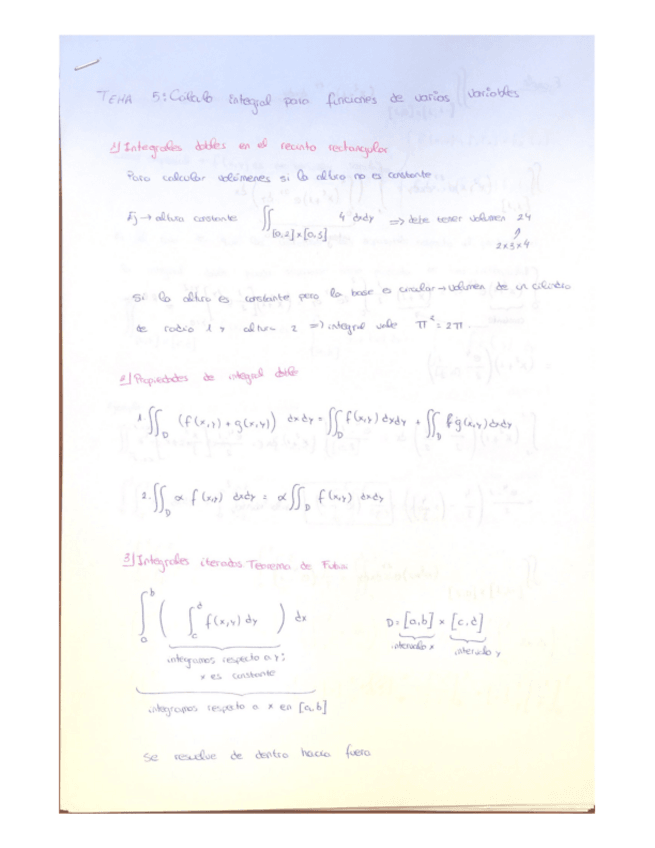 TEMA 5: Cálculo integral para funciones de varias variables
1) Integrales dobles en el recinto rectangular
Para calcular volúmenes si la altura no es constante
Ej → altura constante ∬[0,2]×[0,3] 4 dxdy => debe tener volumen 24
2×3×4
Si la altura es constante pero la base es circular → volumen de un cilindro
de radio 1 y altura 2 => integral vale π² = 2π.
2) Propiedades de integral doble
1. ∬D (f(x,y) + g(x,y)) dxdy = ∬D f(x,y) dxdy + ∬D g(x,y) dxdy
2. ∬D α f(x,y) dxdy = α ∬D f(x,y) dxdy
3) Integrales iteradas Teorema de Fubini
∫a^b ( ∫c^d f(x,y) dy ) dx
D = [a,b] × [c,d]
intervalo x intervalo y
integramos respecto a y;
x es constante
integramos respecto a x en [a,b]
Se resuelve de dentro hacia fuera